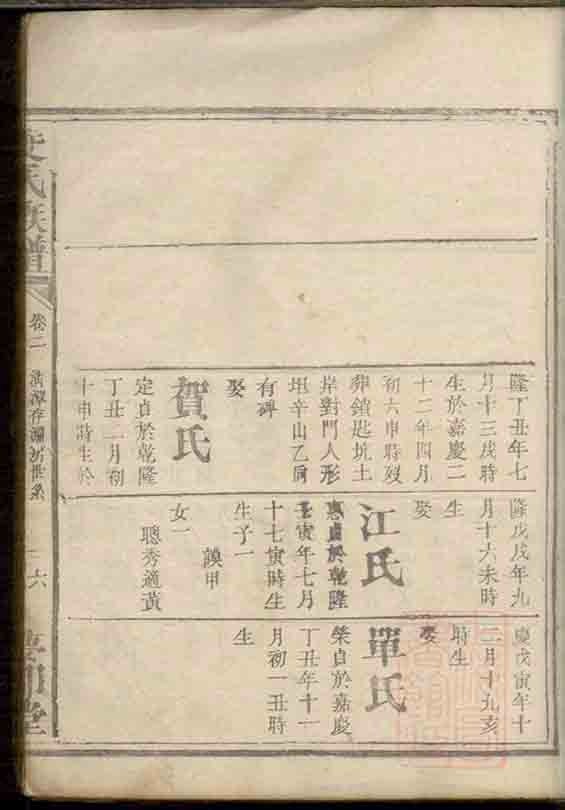 隆丁丑年七
月十三戌時
生於嘉慶二
十二年四月
初六申時歿
葬鎖匙坑土
岸對門人形
坦辛山乙向
有碑
娶
賀氏
定貞於乾隆
丁丑二月初
十申時生於
隆戊戌年九
月十六未時
生
娶
江氏
惠貞於乾隆
壬寅年七月
十七寅時生
生子一
謨甲
女一
聰秀適黃
慶戊寅年十
二月十九亥
時生
娶
單氏
榮貞於嘉慶
丁丑年十一
月初一丑時
生
氏族譜
卷二
世系
六
堂